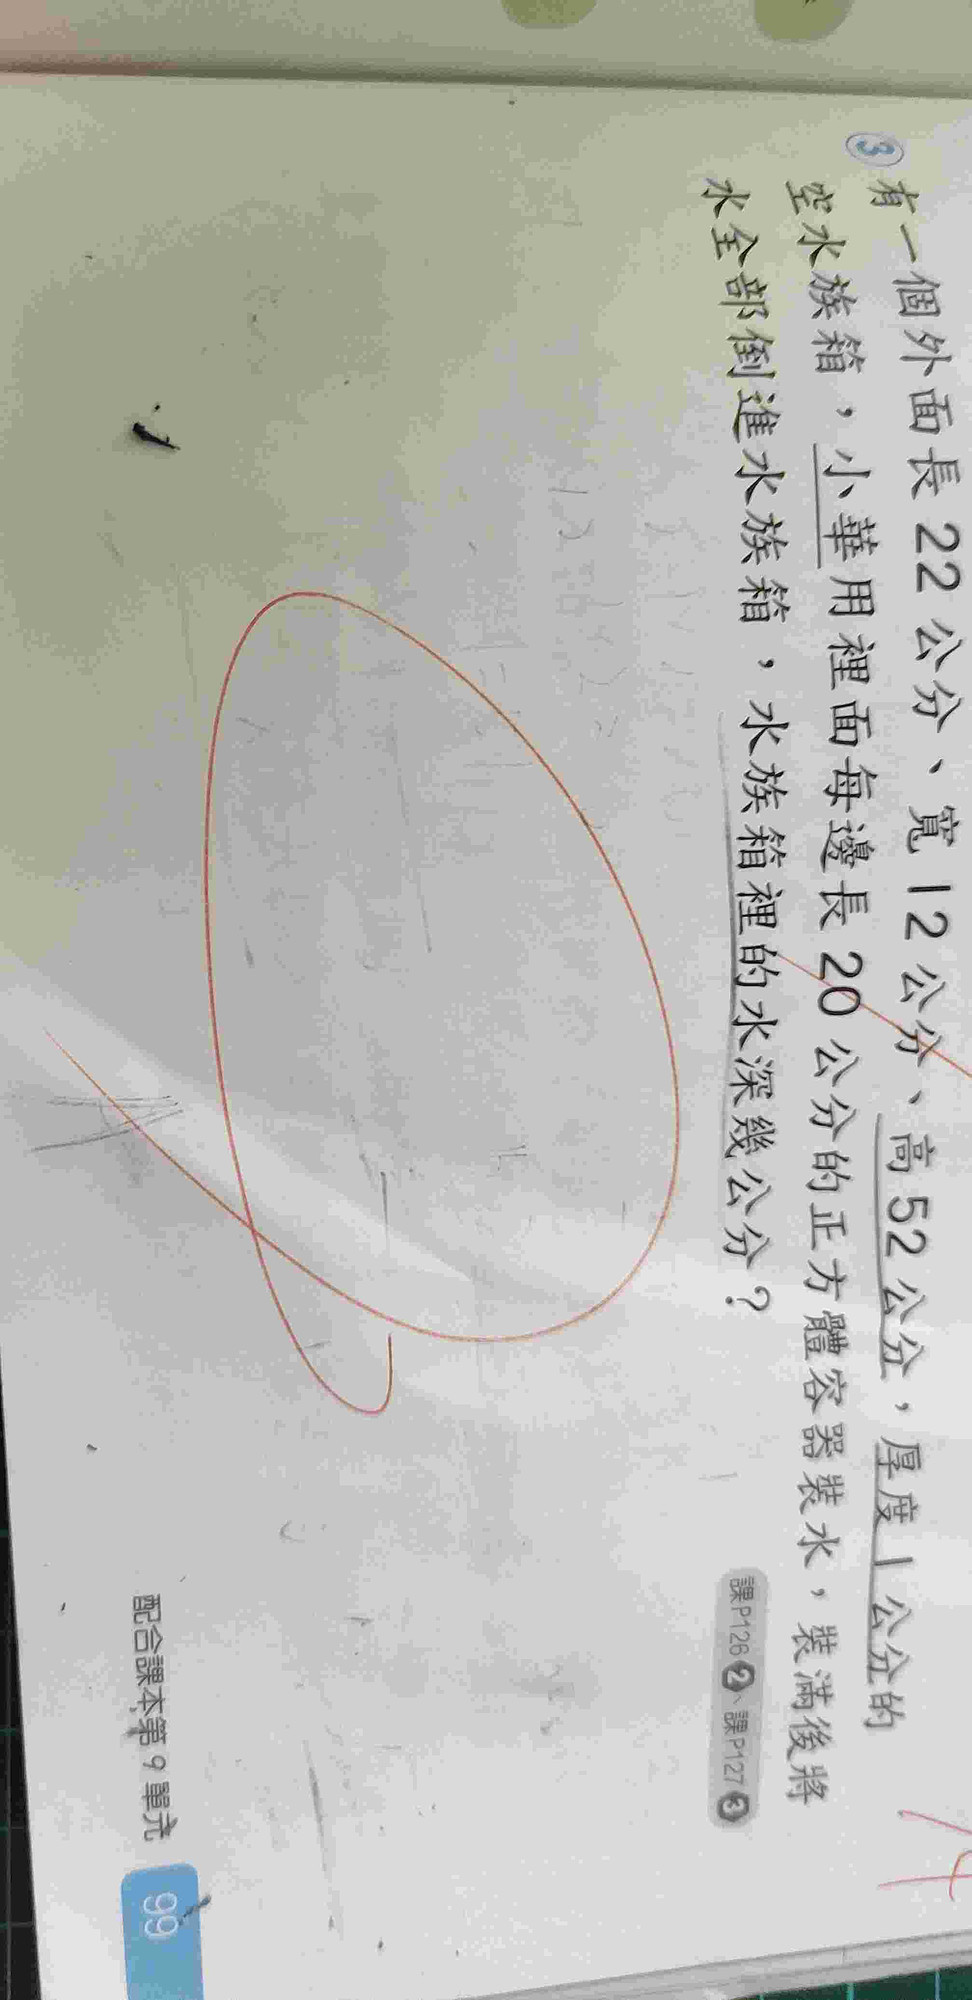 ③有一個外面長 22 公分、寬 12 公分、高 52 公分，厚度 1 公分的
空水族箱，小華用裡面每邊長 20 公分的正方體容器裝水，裝滿後將
水全部倒進水族箱，水族箱裡的水深幾公分？
課P126❷、課P127❸
配合課本第 9 單元
99